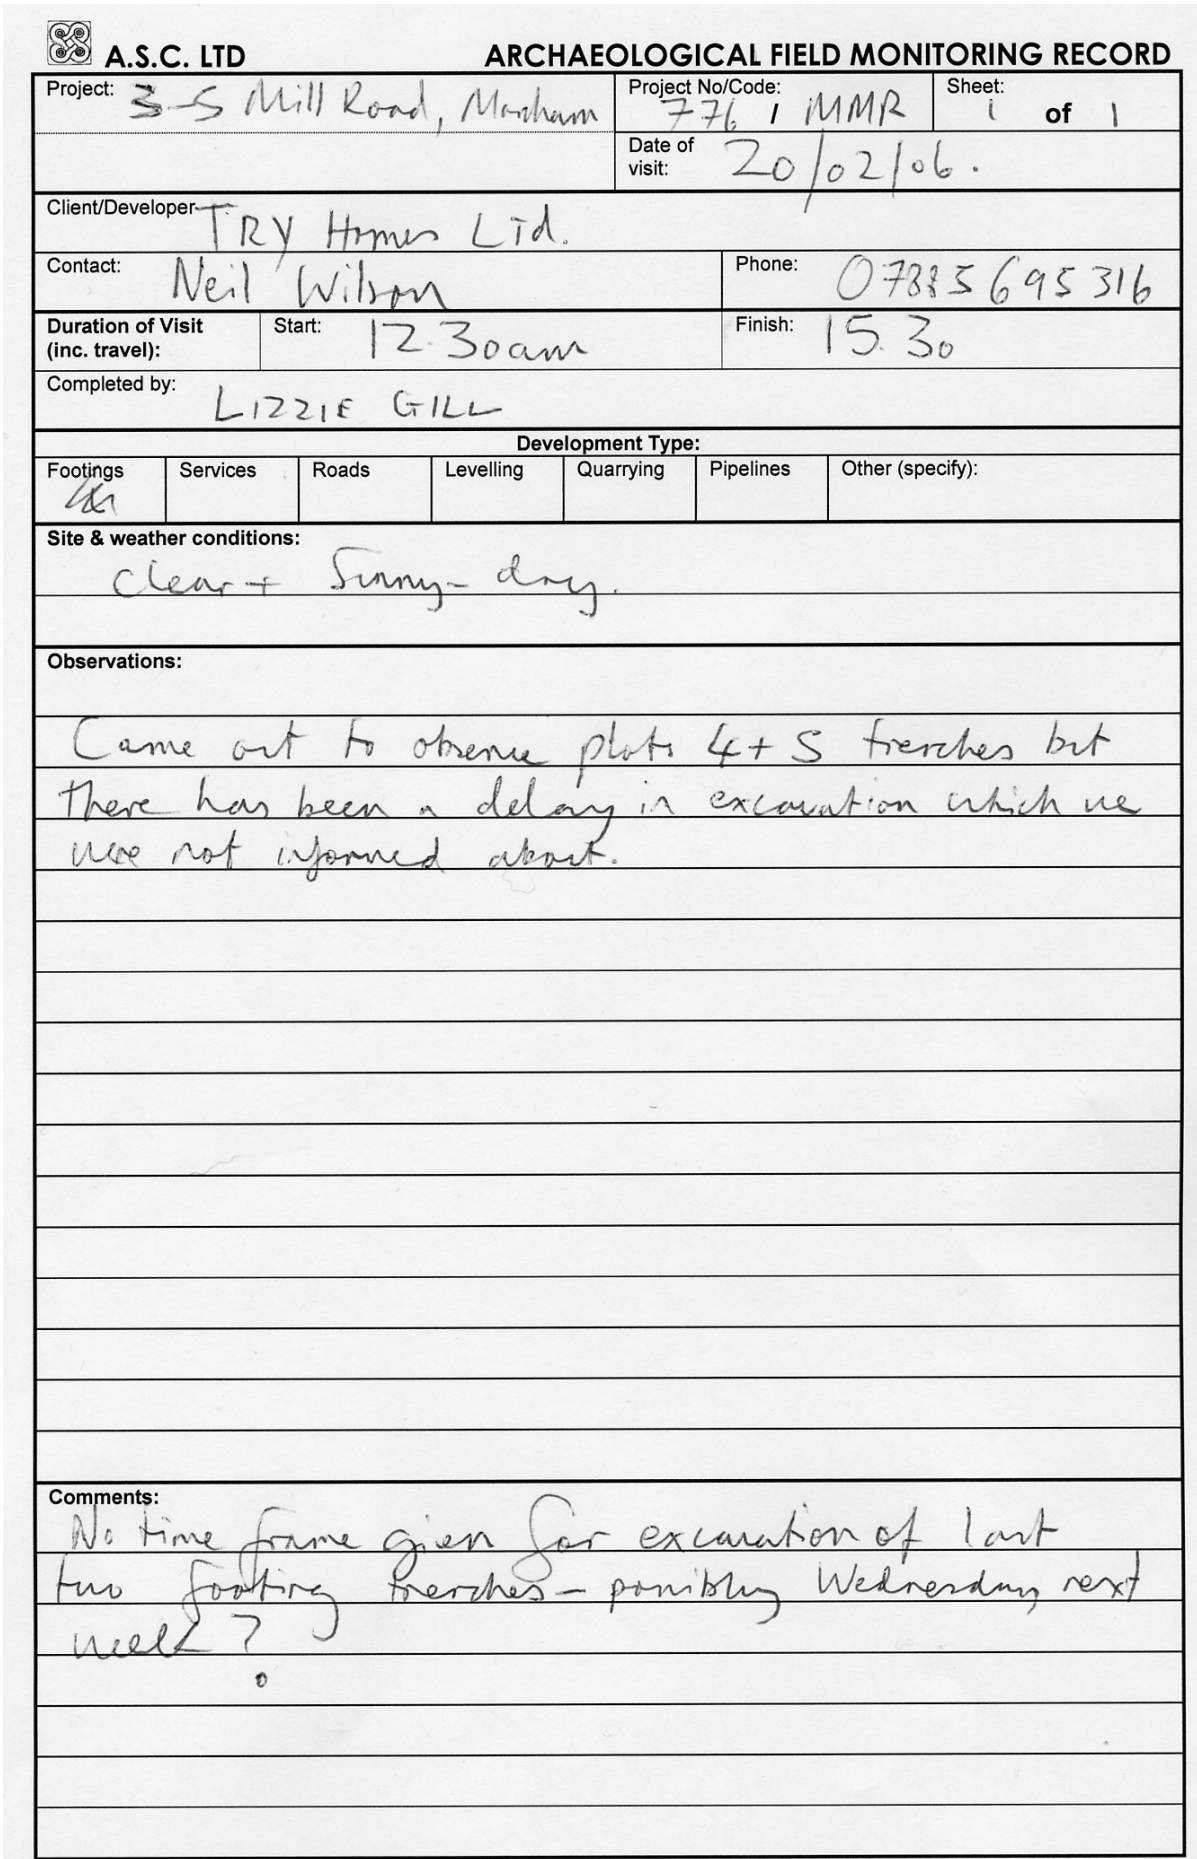 A.S.C. LTD ARCHAEOLOGICAL FIELD MONITORING RECORD
Project: 3-5 Mill Road, Marcham
Project No/Code: 776 / MMR
Sheet: 1 of 1
Date of visit: 20/02/06.
Client/Developer TRY Homes Ltd.
Contact: Neil Wilson Phone: 07885 695 316
Duration of Visit (inc. travel): Start: 12.30am Finish: 15.30
Completed by: LIZZIE GILL
Development Type:
Footings Services Roads Levelling Quarrying Pipelines Other (specify):
Site & weather conditions:
Clear + Sunny - dry.
Observations:
Came out to observe plots 4 + 5 trenches but
there has been a delay in excavation which we
were not informed about.
Comments:
No time frame given for excavation of last
two footing trenches - possibly Wednesday next
week?